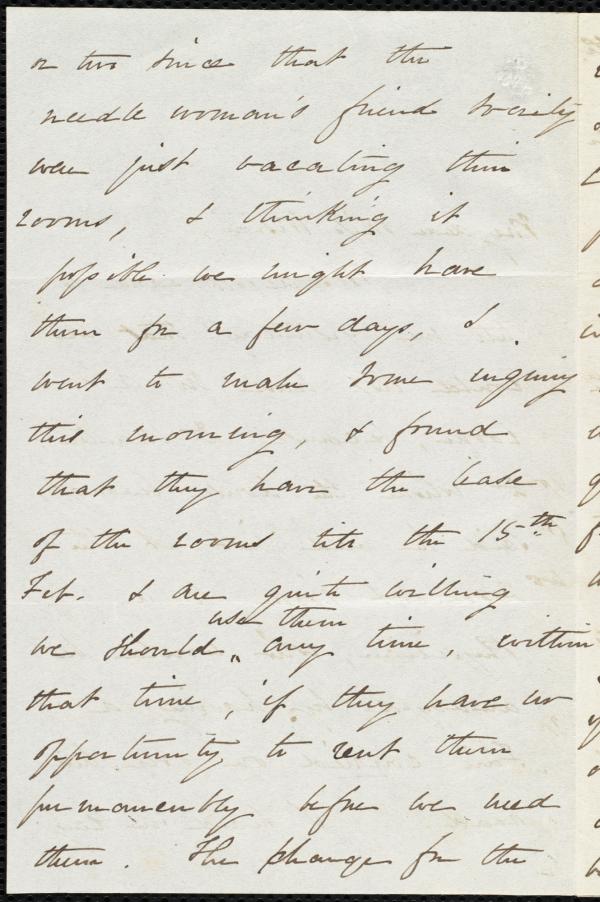 or two since that the
needle woman's friend Society
were just vacating their
rooms, & thinking it
possible we might have
them for a few days, I
went to make some inquiry
this morning, & found
that they have the lease
of the rooms till the 15th
Feb. & are quite willing
use them
we should, any time, within
that time, if they have no
opportunity to rent them
permanently before we need
them. The charge for the